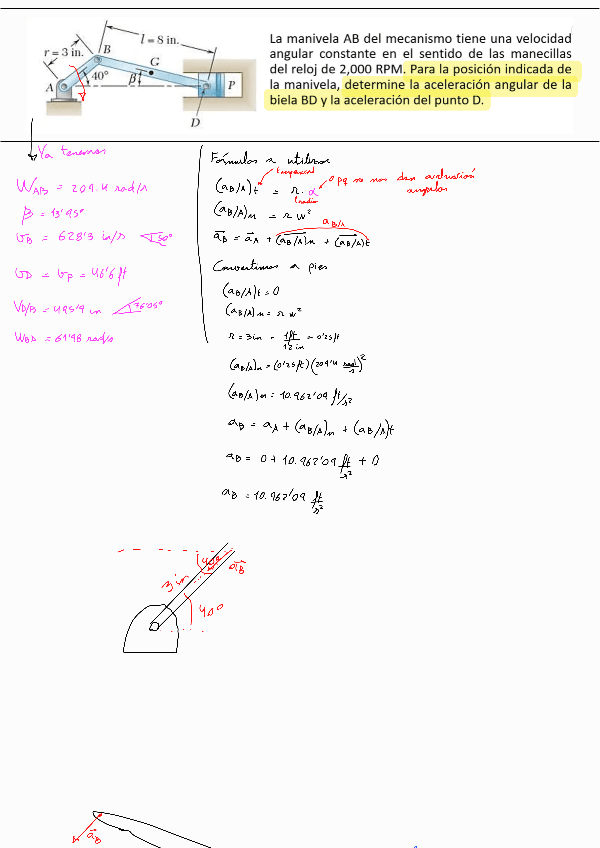 La manivela AB del mecanismo tiene una velocidad
angular constante en el sentido de las manecillas
del reloj de 2,000 RPM. Para la posición indicada de
la manivela, determine la aceleración angular de la
biela BD y la aceleración del punto D.
l = 8 in.
r = 3 in.
B
G
40°
β
A
P
D
Ya tenemos
W_AB = 209'4 rad/s
β = 13'95°
v_B = 628'3 in/s 50°
v_D = v_P = 46'6 ft
V_D/B = 495'9 in 76'05°
W_BD = 61'98 rad/s
Fórmulas a utilizar
tangencial
(a_B/A)t = r · α 0 pq no nos dan aceleración
radio angular
(a_B/A)n = r w²
a_B/A
a_B = a_A + (a_B/A)n + (a_B/A)t
Convertimos a pies
(a_B/A)t = 0
(a_B/A)n = r w²
r = 3 in - 1ft/12 in = 0'25 ft
(a_B/A)n = (0'25 ft) (209'4 rad/s)²
(a_B/A)n = 10.962'09 ft/s²
a_B = a_A + (a_B/A)n + (a_B/A)t
a_B = 0 + 10.962'09 ft/s² + 0
a_B = 10.962'09 ft/s²
40°
3 in
a_B
40°
a_B